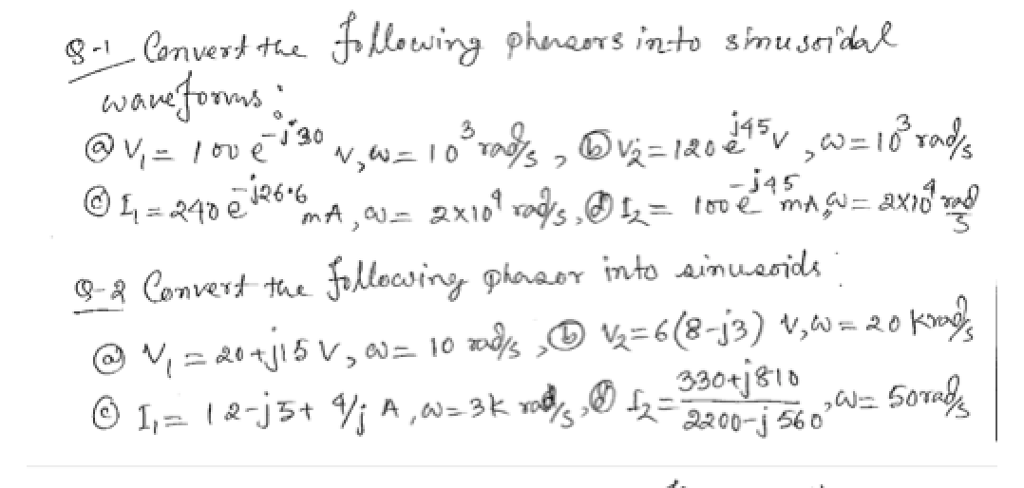 Q-1 Convert the following phasors into sinusoidal
waveforms:
ⓐ V₁ = 100 e^-j30 V, ω = 10³ rad/s, ⓑ V₂ = 120 e^j45 V, ω = 10³ rad/s
ⓒ I₁ = 240 e^-j26.6 mA, ω = 2×10⁴ rad/s, ⓓ I₂ = 100 e^-j45 mA, ω = 2×10⁴ rad/s
Q-2 Convert the following phasor into sinusoids:
ⓐ V₁ = 20+j15 V, ω = 10 rad/s, ⓑ V₂ = 6(8-j3) V, ω = 20 Krad/s
ⓒ I₁ = 12-j5+ 4/j A, ω = 3K rad/s, ⓓ I₂ = 330+j810 / 2200-j560, ω = 50 rad/s